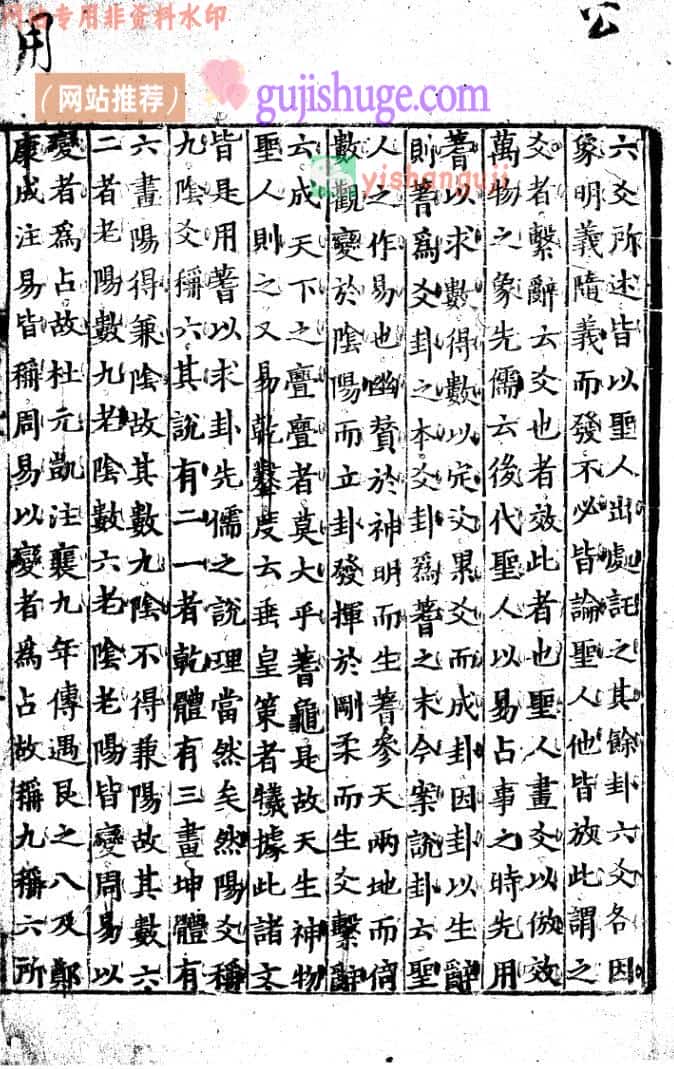 网站专用非资料水印
公
用
（网站推荐）
gujishuge.com
yishanguji
六爻所述皆以聖人出處託之其餘卦六爻各因
象明義隨義而發不必皆論聖人他皆放此謂之
爻者繫辭云爻也者效此者也聖人畫爻以倣效
萬物之象先儒云後代聖人以易占事之時先用
蓍以求數得數以定爻累爻而成卦因卦以生辭
則蓍爲爻卦之本爻卦爲蓍之末今案說卦云聖
人之作易也幽贊於神明而生蓍參天兩地而倚
數觀變於陰陽而立卦發揮於剛柔而生爻繫辭
云成天下之亹亹者莫大乎蓍龜是故天生神物
聖人則之又易乾鑿度云垂皇策者犧據此諸文
皆是用蓍以求卦先儒之說理當然矣然陽爻稱
九陰爻稱六其說有二一者乾體有三畫坤體有
六畫陽得兼陰故其數九陰不得兼陽故其數六
二者老陽數九老陰數六老陰老陽皆變周易以
變者爲占故杜元凱注襄九年傳遇艮之八及鄭
康成注易皆稱周易以變者爲占故稱九稱六所